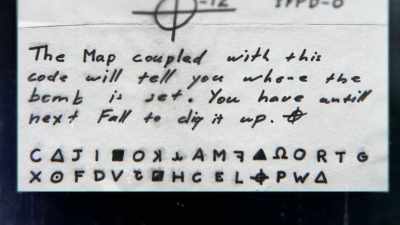 The Map coupled with this
code will tell you where the
bomb is set. You have untill
next Fall to dig it up. ⌖
C Δ J I ■ O ꓘ ⅄ A M ꟻ ▲ Ω O R T G
X ⊙ F D V ▣ H C E L ⌖ P W Δ